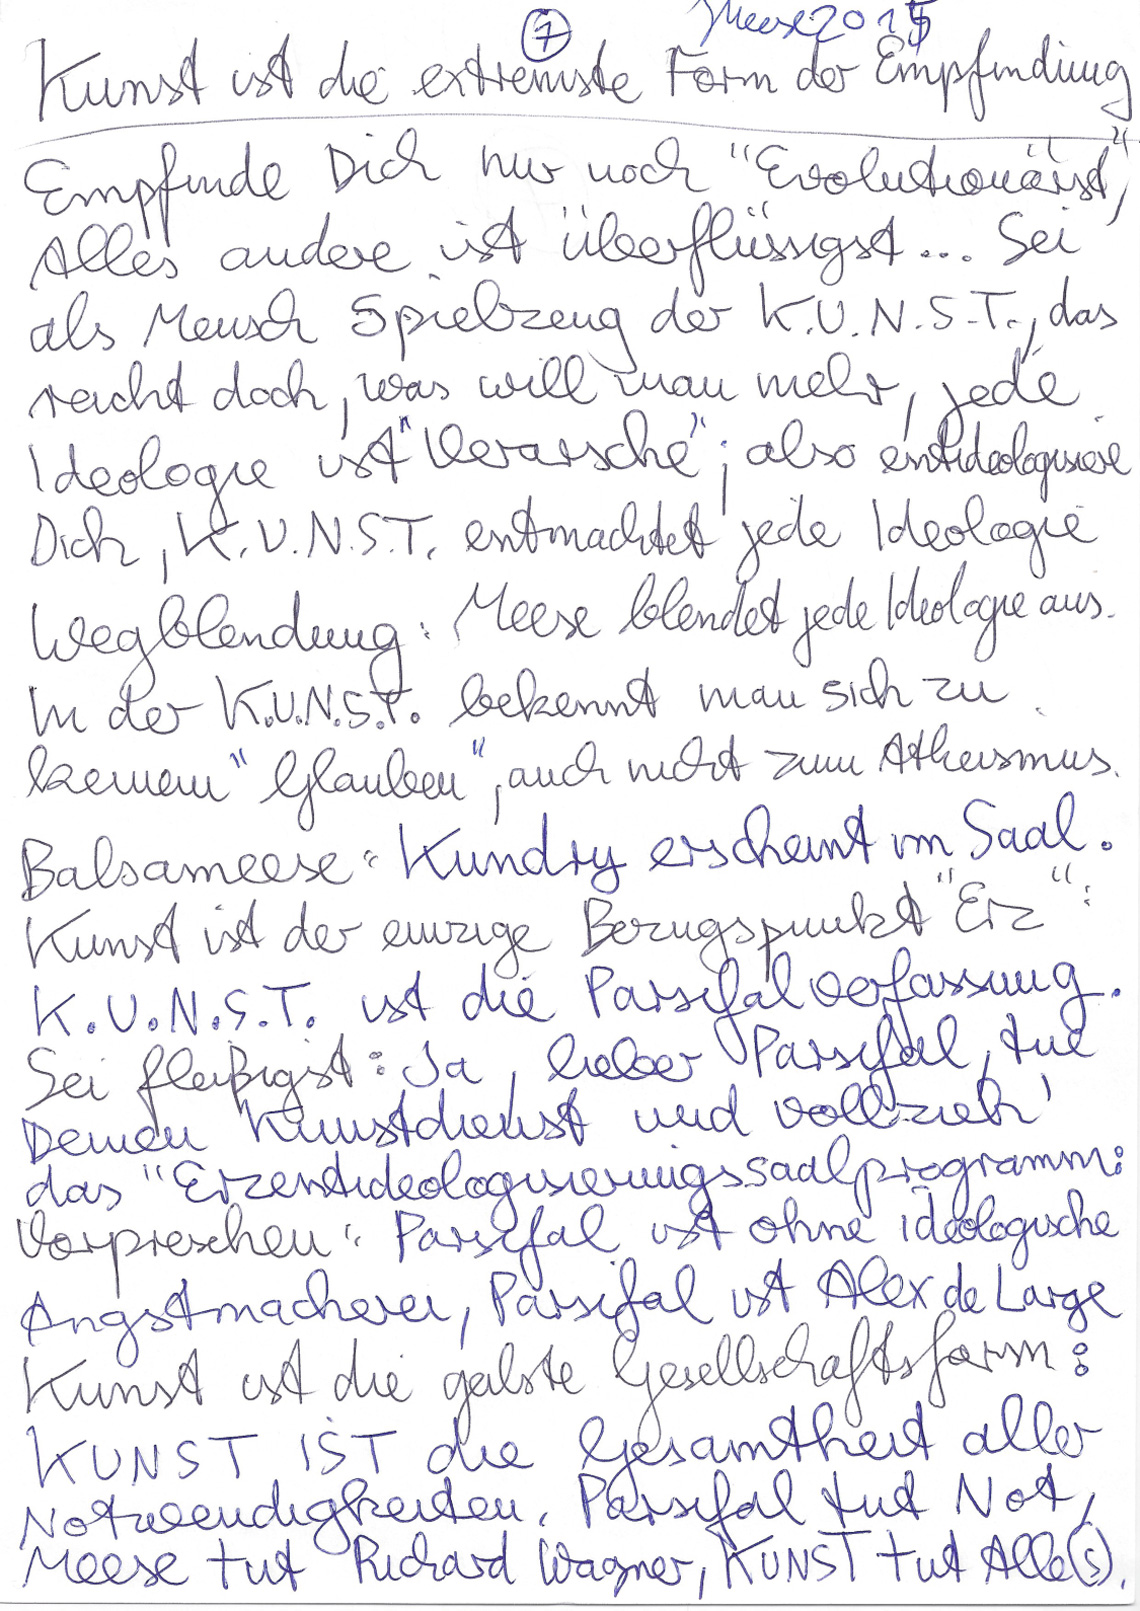 7 JMeese 2015
Kunst ist die extremste Form der Empfindung
Empfinde Dich nur noch "Evolutionärst",
Alles andere ist überflüssigst... Sei
als Mensch Spielzeug der K.U.N.S.T., das
reicht doch, was will man mehr, jede
Ideologie ist "Verarsche"; also entideologisiere
Dich, K.U.N.S.T. entmachtet jede Ideologie
Wegblendung: Meese blendet jede Ideologie aus.
In der K.U.N.S.T. bekennt man sich zu
keinem "Glauben", auch nicht zum Atheismus.
Balsameese: Kundry erscheint im Saal.
Kunst ist der einzige Bezugspunkt "Erz":
K.U.N.S.T. ist die Parsifalverfassung.
Sei fleißigst: Ja, lieber Parsifal, tue
Deinen Kunstdienst und vollzieh'
das "Erzentideologisierungssaalprogramm:
Vorpreschen: Parsifal ist ohne ideologische
Angstmacherei, Parsifal ist Alex de Large
Kunst ist die geilste Gesellschaftsform:
KUNST IST die Gesamtheit aller
Notwendigkeiten. Parsifal tut Not,
Meese tut Richard Wagner, KUNST tut Alle(s).